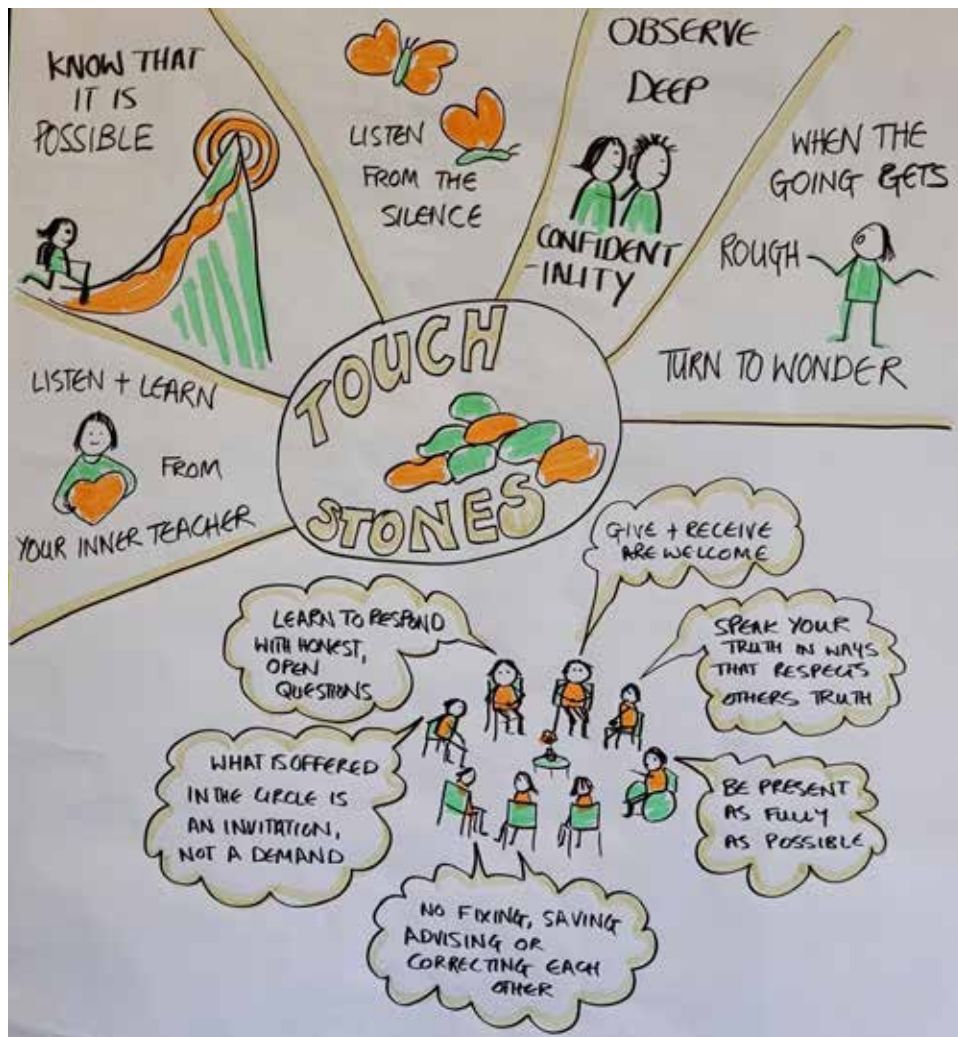 KNOW THAT
IT IS
POSSIBLE
LISTEN
FROM THE
SILENCE
OBSERVE
DEEP
CONFIDENT
-IALITY
WHEN THE
GOING GETS
ROUGH
TURN TO WONDER
LISTEN + LEARN
FROM
YOUR INNER TEACHER
TOUCH
STONES
GIVE + RECEIVE
ARE WELCOME
LEARN TO RESPOND
WITH HONEST,
OPEN
QUESTIONS
SPEAK YOUR
TRUTH IN WAYS
THAT RESPECTS
OTHERS TRUTH
WHAT IS OFFERED
IN THE CIRCLE IS
AN INVITATION,
NOT A DEMAND
BE PRESENT
AS FULLY
AS POSSIBLE
NO FIXING, SAVING
ADVISING OR
CORRECTING EACH
OTHER